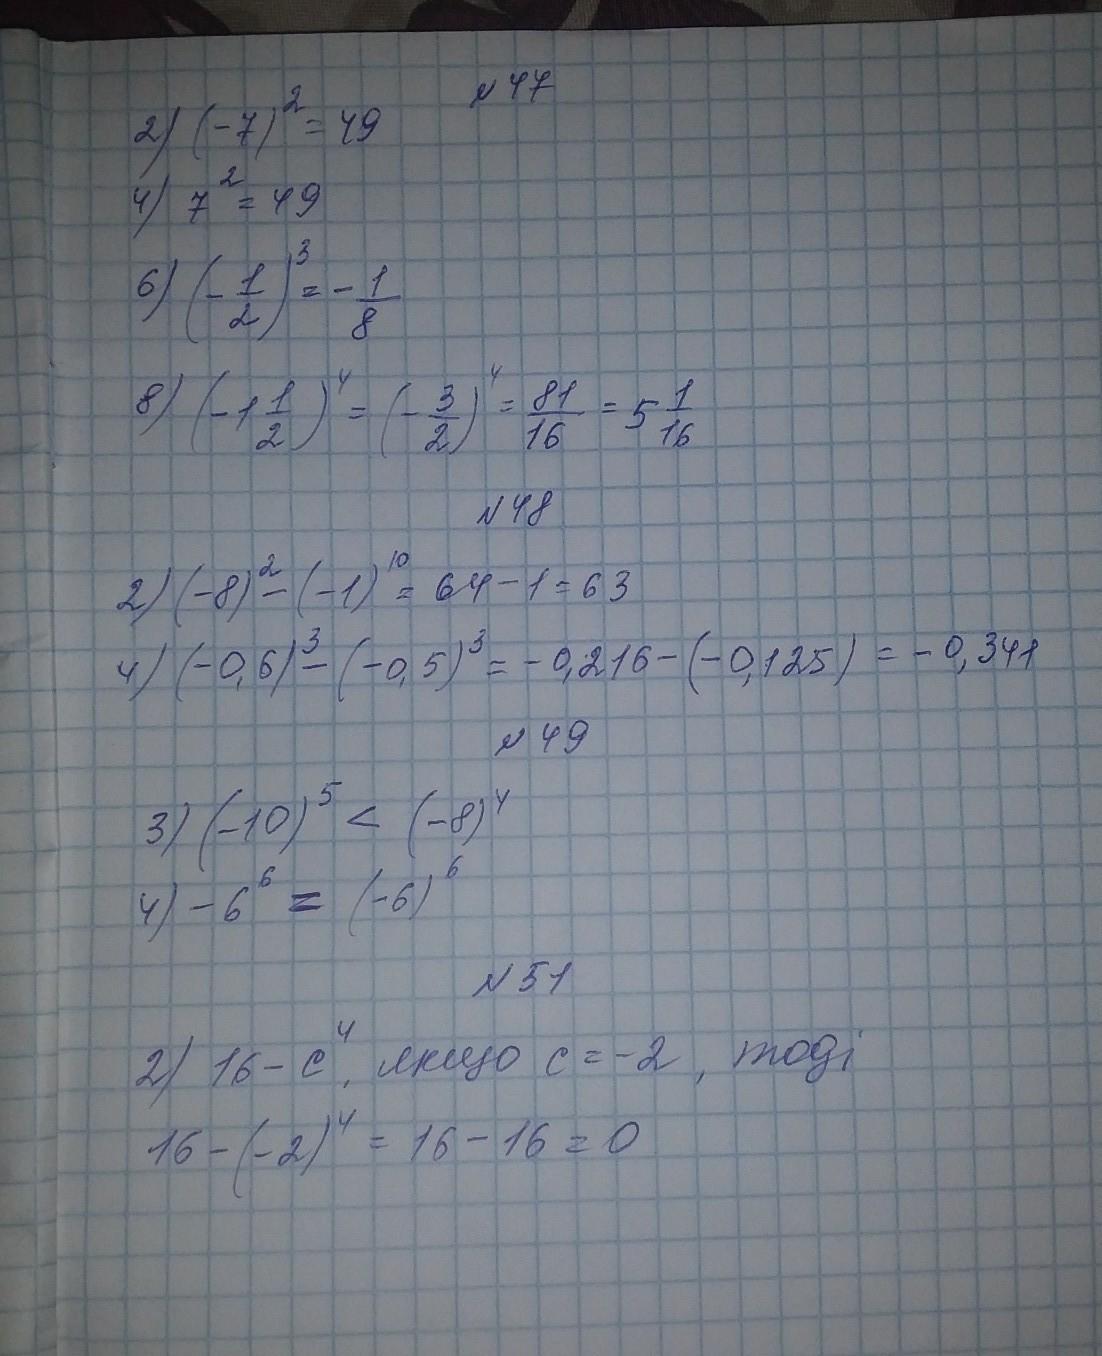 № 47
2) (-7)² = 49
4) 7² = 49
6) (-1/2)³ = -1/8
8) (-1 1/2)⁴ = (-3/2)⁴ = 81/16 = 5 1/16
№ 48
2) (-8)² - (-1)¹⁰ = 64 - 1 = 63
4) (-0,6)³ - (-0,5)³ = -0,216 - (-0,125) = -0,341
№ 49
3) (-10)⁵ < (-8)⁴
4) -6⁶ = (-6)⁶
№ 51
2) 16 - c⁴, якщо c = -2, тоді
16 - (-2)⁴ = 16 - 16 = 0